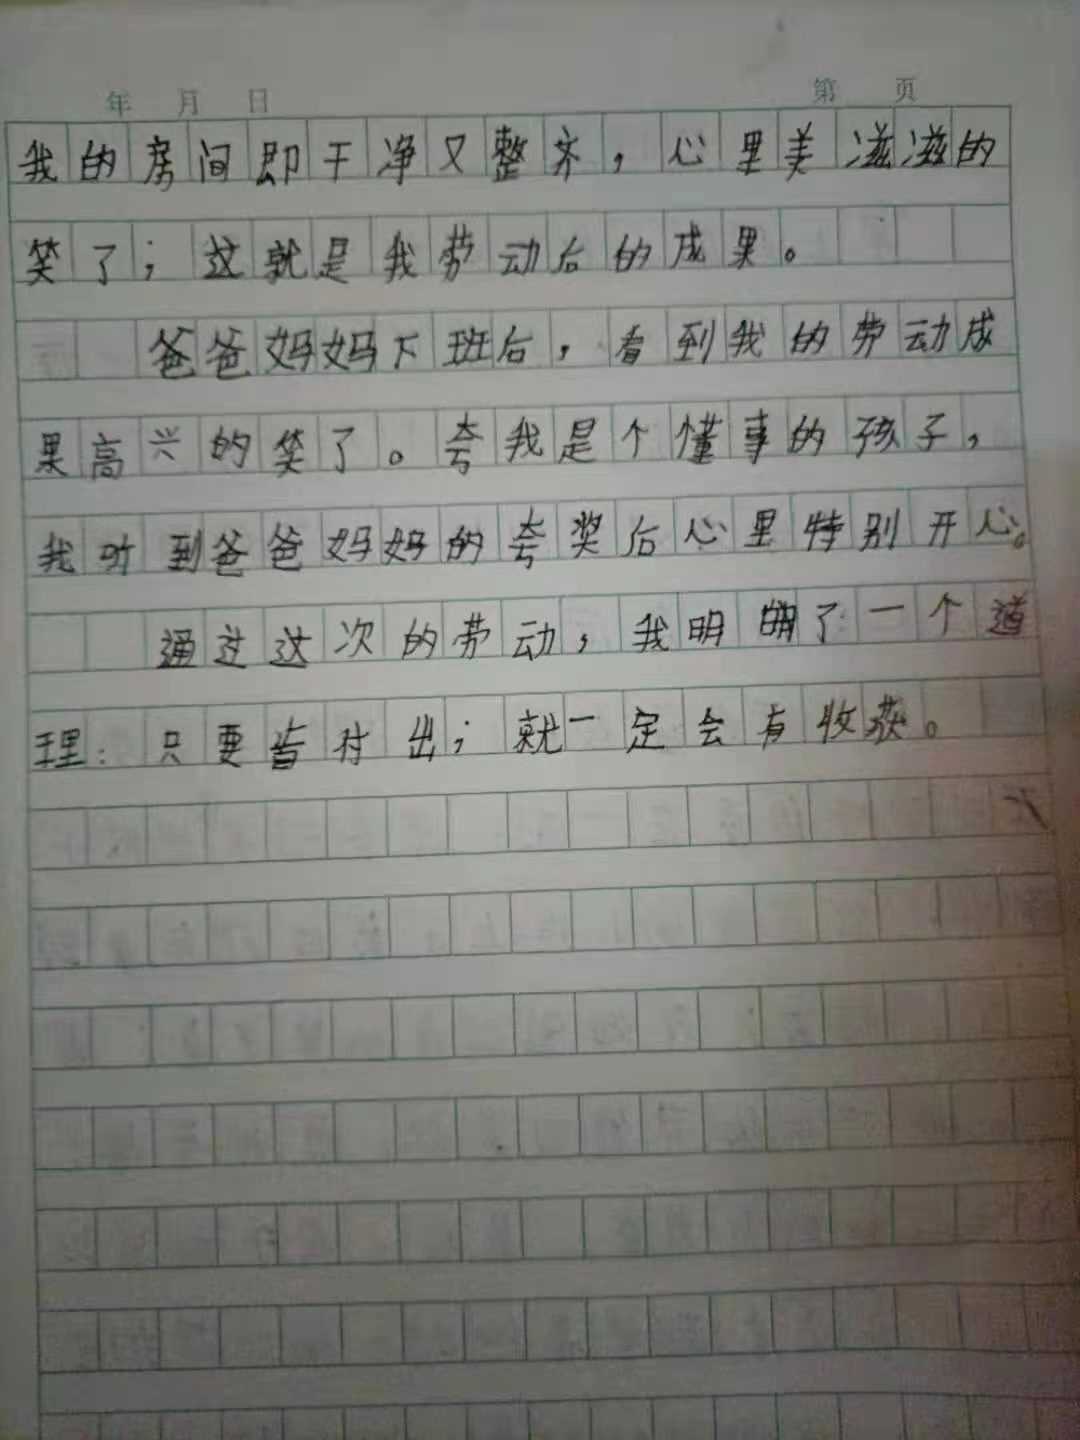 年 月 日 第 页
我的房间即干净又整齐，心里美滋滋的
笑了；这就是我劳动后的成果。
爸爸妈妈下班后，看到我的劳动成
果高兴的笑了。夸我是个懂事的孩子，
我听到爸爸妈妈的夸奖后心里特别开心。
通过这次的劳动，我明了一个道
理：只要肯付出；就一定会有收获。